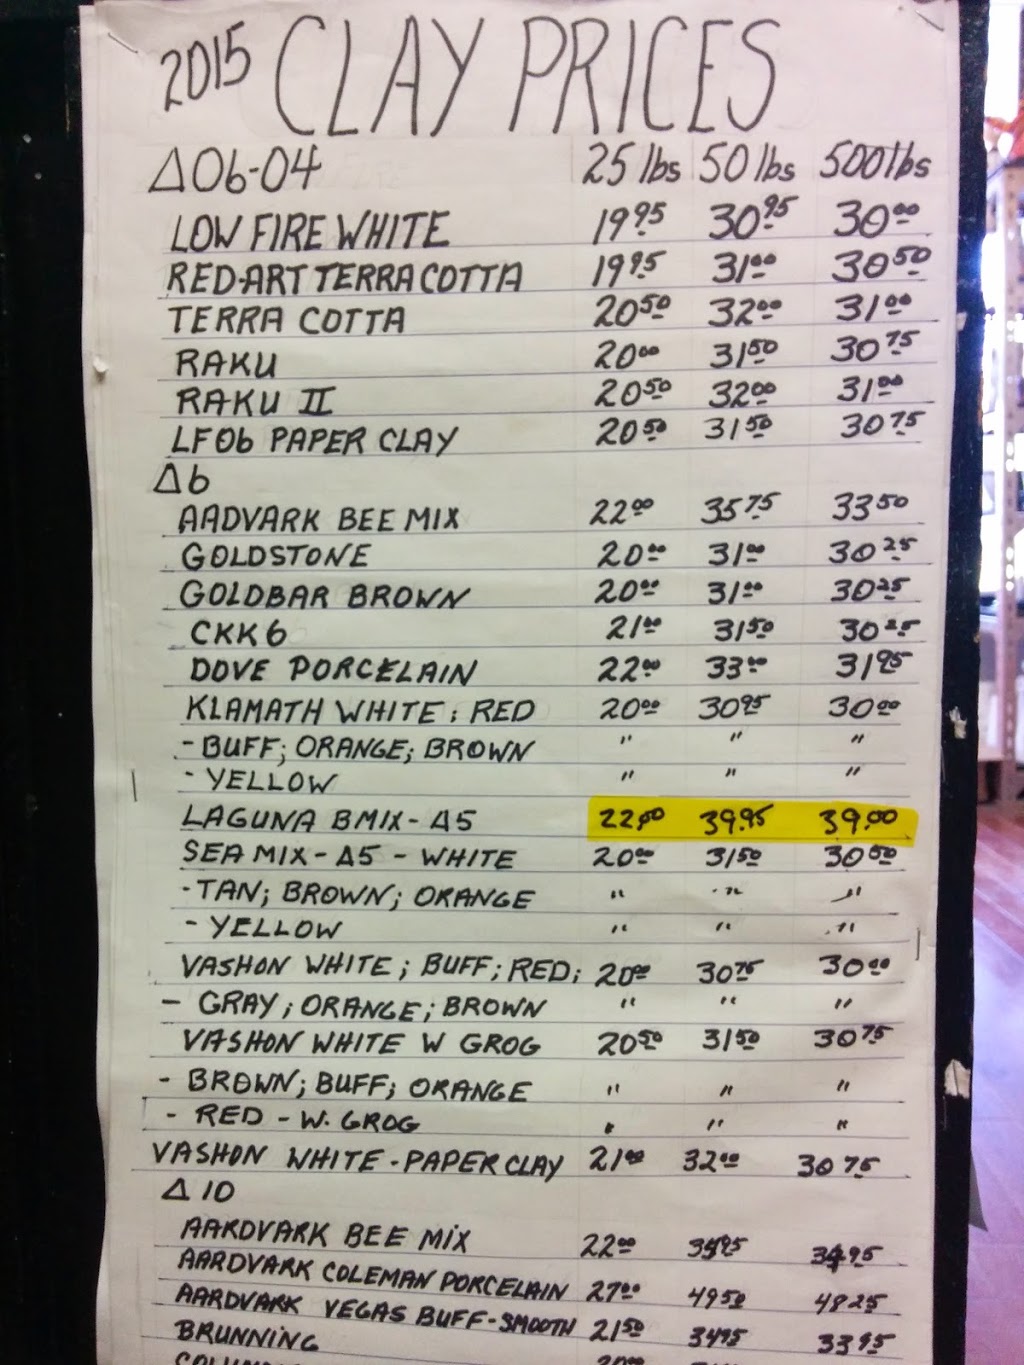 2015 CLAY PRICES
Δ06-04 25 lbs 50 lbs 500 lbs
LOW FIRE WHITE 19.95 30.95 30.00
RED-ART TERRA COTTA 19.95 31.00 30.50
TERRA COTTA 20.50 32.00 31.00
RAKU 20.00 31.50 30.75
RAKU II 20.50 32.00 31.00
LF06 PAPER CLAY 20.50 31.50 30.75
Δ6
AADVARK BEE MIX 22.00 35.75 33.50
GOLDSTONE 20.00 31.00 30.25
GOLDBAR BROWN 20.00 31.00 30.25
CKK6 21.00 31.50 30.25
DOVE PORCELAIN 22.00 33.00 31.95
KLAMATH WHITE; RED 20.00 30.95 30.00
- BUFF; ORANGE; BROWN " " "
- YELLOW " " "
LAGUNA BMIX - Δ5 22.00 39.95 39.00
SEA MIX - Δ5 - WHITE 20.00 31.50 30.50
- TAN; BROWN; ORANGE " " "
- YELLOW " " "
VASHON WHITE; BUFF; RED; 20.00 30.75 30.00
- GRAY; ORANGE; BROWN " " "
VASHON WHITE W GROG 20.50 31.50 30.75
- BROWN; BUFF; ORANGE " " "
- RED - W. GROG " " "
VASHON WHITE - PAPER CLAY 21.00 32.00 30.75
Δ 10
AARDVARK BEE MIX 22.00 35.95 34.95
AARDVARK COLEMAN PORCELAIN 27.00 49.50 48.25
AARDVARK VEGAS BUFF - SMOOTH 21.50 34.95 33.95
BRUNNING